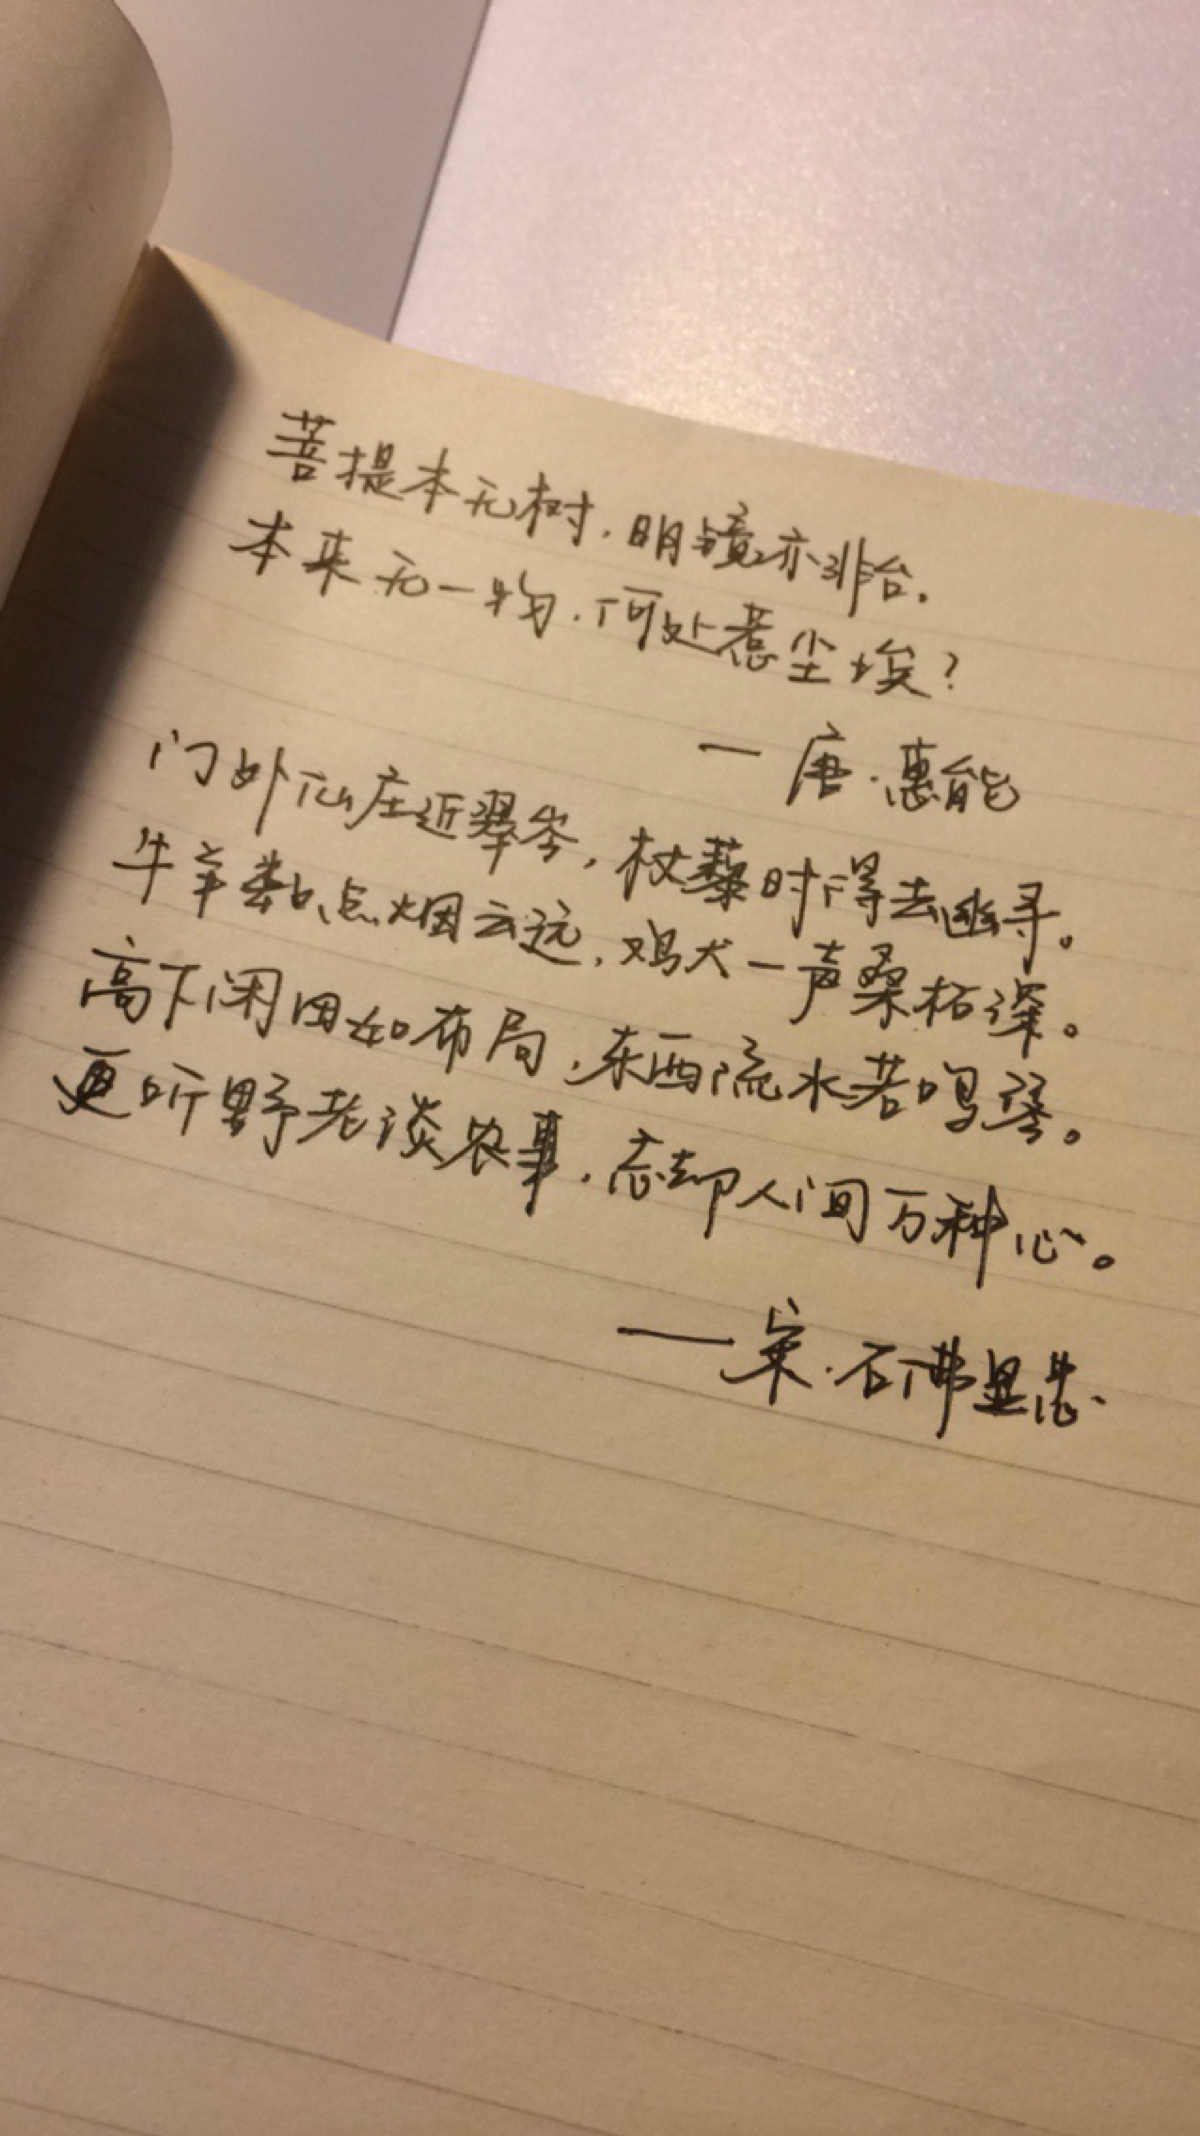 菩提本无树，明镜亦非台。
本来无一物，何处惹尘埃？
—唐·惠能
门外仙庄近翠岑，杖藜时得去幽寻。
牛羊数点烟云远，鸡犬一声桑柘深。
高下闲田如布局，东西流水若鸣琴。
更听野老谈农事，忘却人间万种心。
——宋·石佛显忠